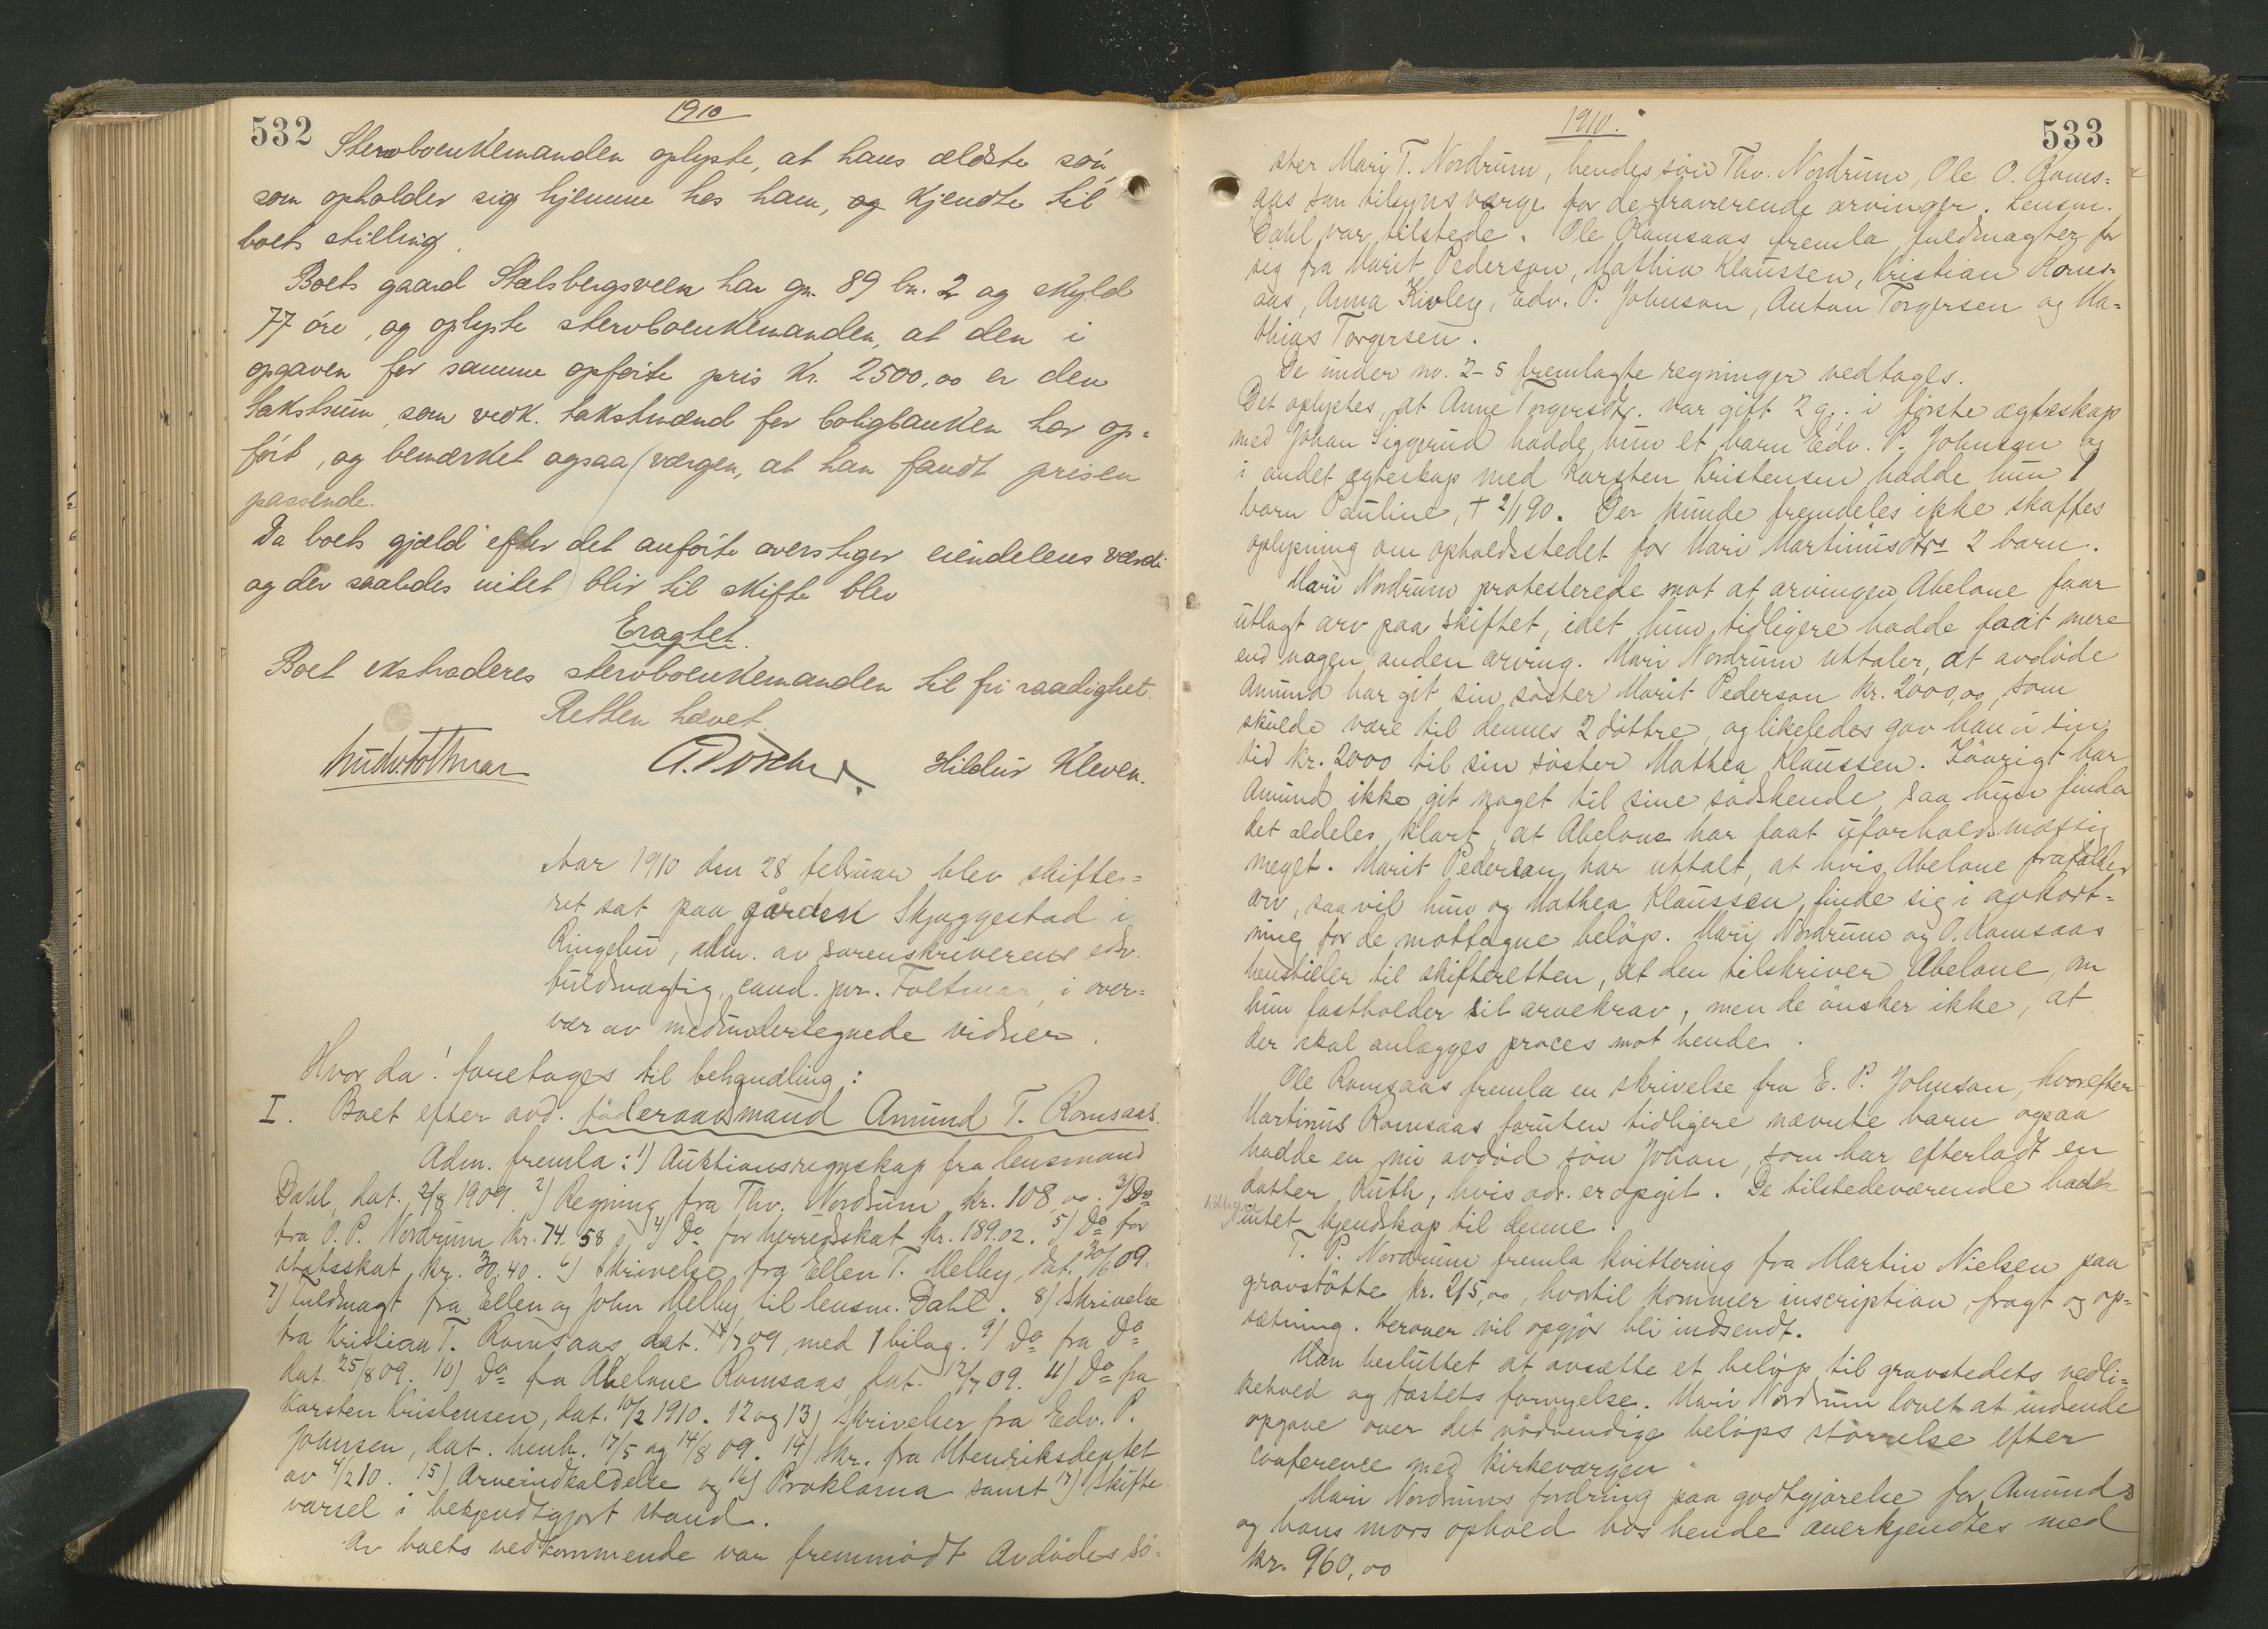 532
1910
Stervboenkemanden oplyste, at hans ældste søn,
som opholder sig hjemme hos ham, og kjendte til
boets stilling.
Boets gaard Stalsbergsveen har gn. 89 bn. 2 og skyld
77 øre, og oplyste stervboenkemanden, at den i
opgaven for samme opførte pris kr. 2500,00 er den
takstsum, som vedk. takstmænd for boligbanken har op-
ført, og bemerket ogsaa værgen, at han fandt prisen
passende.
Da boets gjæld efter det anførte overstiger eiendelens værdi
og der saaledes intet blir til skifte blev
Eragtet.
Boet ekstraderes stervboenkemanden til fri raadighet.
Retten hævet.
Hildur Kleven.
Aar 1910 den 28 februar blev skifte-
ret sat paa gården Skjæggestad i
Ringebu, adm. av sorenskriverens edsv.
fuldmægtig, cand. jur. Foltmar, i over-
vær av medundertegnede vidner.
Hvor da! foretages til behandling:
I. Boet efter avd. føderaadsmand Amund T. Romsaas.
Adm. fremla: 1) Auktionsregnskap fra lensmand
Dahl, dat. 2/8 1909. 2) Regning fra Thv. Nordrum kr. 108,00. 3) Do
fra O. P. Nordrum kr. 74.58. 4) Do for herredsskat kr. 189.02. 5) Do for
statsskat kr. 30,40. 6) Skrivelse fra Ellen T. Melby, dat. 30/6 09.
7) Fuldmagt fra Ellen og John Melby til lensm. Dahl. 8) Skrivelse
fra Kristian T. Romsaas, dat. /7 09, med 1 bilag. 9) Do fra Do
dat. 25/8 09. 10) Do fra Abelone Romsaas, dat. 12/7 09. 11) Do fra
Karsten Kristensen, dat. 10/2 1910. 12 og 13) Skrivelser fra Edv. P.
Johnsen, dat. henh. 17/5 og 14/8 09. 14) Skr. fra Utenriksdeptet
av 4/2 10. 15) Arveindkaldelse og 16) Proklama samt 17) Skifte-
varsel i bekjendtgjort stand.
Av boets vedkommende var fremmødt Avdødes sø-
1910.
533
ster Mari T. Nordrum, hendes søn Thv. Nordrum, Ole O. Roms-
aas som tilsynsværge for de fraværende arvinger. Lensm.
Dahl var tilstede. Ole Romsaas fremla fuldmagter for
sig fra Marit Pederson, Mathia Klaussen, Kristian Roms-
aas, Anna Kivley, Edv. P. Johnson, Anton Torgersen og Ma-
thias Torgersen.
De under no. 2-5 fremlagte regninger vedtages.
Det oplystes, at Anne Torgersdtr. var gift 2 g.: i første ægteskap
med Johan Siggerud hadde hun et barn Edv. P. Johnson og
i andet ægteskap med Karsten Kristensen hadde hun 1
barn Pauline, † 2/1 90. Der kunde fremdeles ikke skaffes
oplysning om opholdsstedet for Mari Martinusdtrs 2 barn.
Mari Nordrum protesterede mot at arvingen Abelone faar
utlagt arv paa skiftet, idet hun tidligere hadde faat mere
end nogen anden arving. Mari Nordrum uttaler, at avdøde
Amund har git sin søster Marit Pederson kr. 2000,00, som
skulde være til dennes 2 døttre, og likeledes gav han i sin
tid kr. 2000 til sin søster Mathea Klaussen. Iøvrigt har
Amund ikke git noget til sine sødskende, saa hun finder
det aldeles klart, at Abelone har faat uforholdsmæssig
meget. Marit Pederson har uttalt, at hvis Abelone frafalder
arv, saa vil hun og Mathea Klaussen finde sig i avkort-
ning for de mottagne beløp. Mari Nordrum og O. Romsaas
henstiller til skifteretten, at den tilskriver Abelone, om
hun fastholder sit arvekrav, men de ønsker ikke, at
der skal anlægges proces mot hende.
Ole Romsaas fremla en skrivelse fra E. P. Johnson, hvorefter
Martinus Romsaas foruten tidligere nævnte barn ogsaa
hadde en nu avdød søn Johan, som har efterladt en
datter Ruth, hvis adr. er opgit. De tilstedeværende hadde
tidligere intet kjendskap til denne.
T. P. Nordrum fremla kvittering fra Martin Nielsen paa
gravstøtte kr. 215,00, hvortil kommer inscription, fragt og op-
sætning. Herover vil opgjør bli indsendt.
Man besluttet at avsætte et beløp til gravstedets vedli-
kehold og fæstets fornyelse. Mari Nordrum lovet at indsende
opgave over det nødvendige beløps størrelse efter
conference med kirkeværgen.
Mari Nordrums fordring paa godtgjørelse for Amunds
og hans mors ophold hos hende anerkjendtes med
kr. 960,00